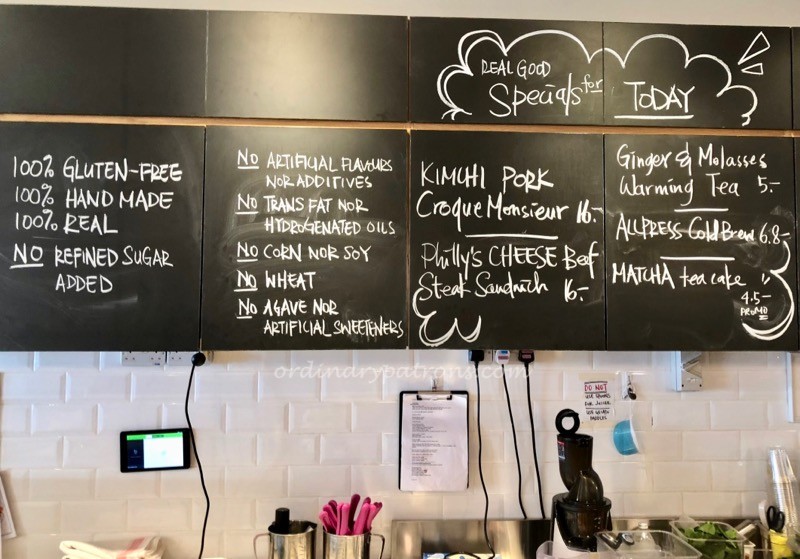 REAL GOOD
Specials for TODAY
100% GLUTEN-FREE
100% HAND MADE
100% REAL
NO REFINED SUGAR
ADDED
NO ARTIFICIAL FLAVOURS
NOR ADDITIVES
NO TRANS FAT NOR
HYDROGENATED OILS
NO CORN NOR SOY
NO WHEAT
NO AGAVE NOR
ARTIFICIAL SWEETENERS
KIMCHI PORK
Croque Monsieur 16.-
Philly's CHEESE Beef
Steak Sandwich 16.-
Ginger & Molasses
Warming Tea 5.-
ALLPRESS Cold Brew 6.8-
MATCHA tea cake
4.5-
PROMO
ordinarypatrons.com
DO NOT